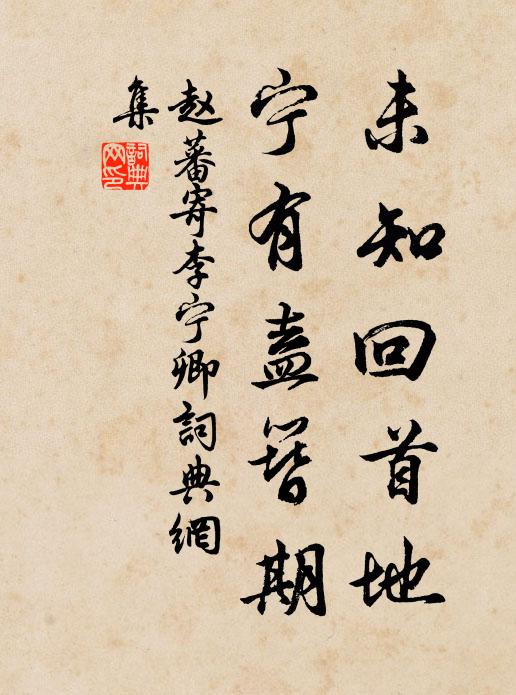 未知回首地
宁有盍簪期
赵蕃寄李宁卿詞典網
集
詞典
网印